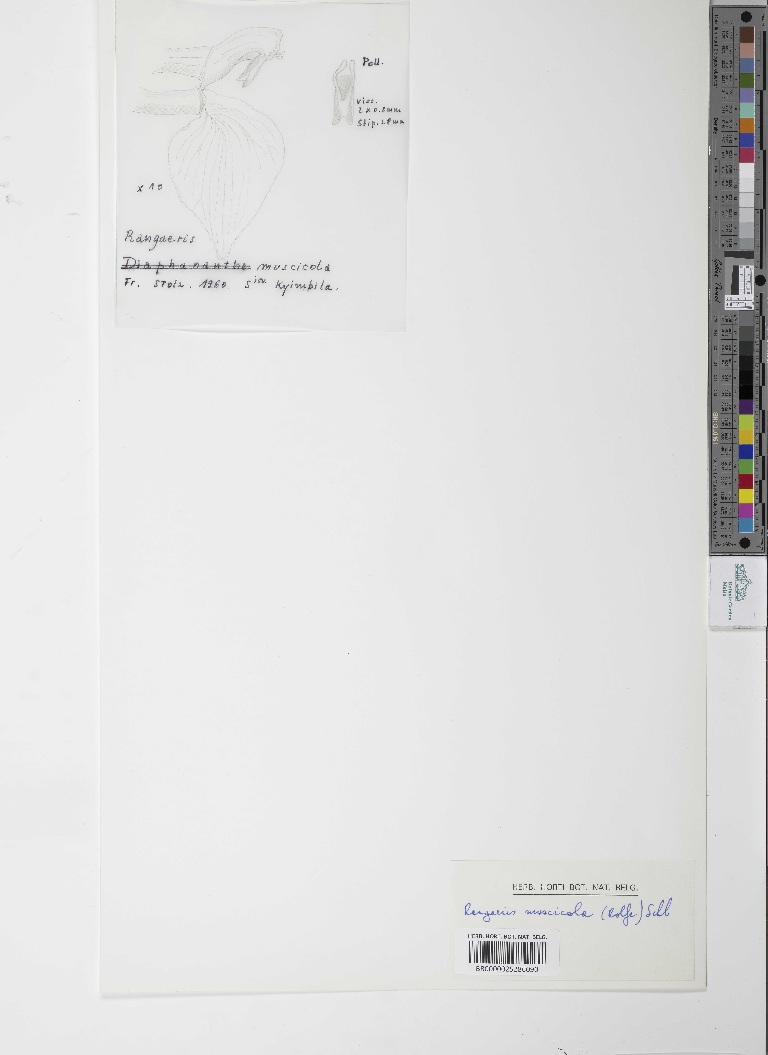 Poll.
visc.
2 x 0.8 mm
Stip.
x 10
Rangaeris
Diaphananthe muscicola
Fr. Stolz. 1960 Kyimbila.
HERB. HORTI BOT. NAT. BELG.
Rangaeris muscicola (Rolfe) Schl
HERB. HORT. BOT. NAT. BELG.